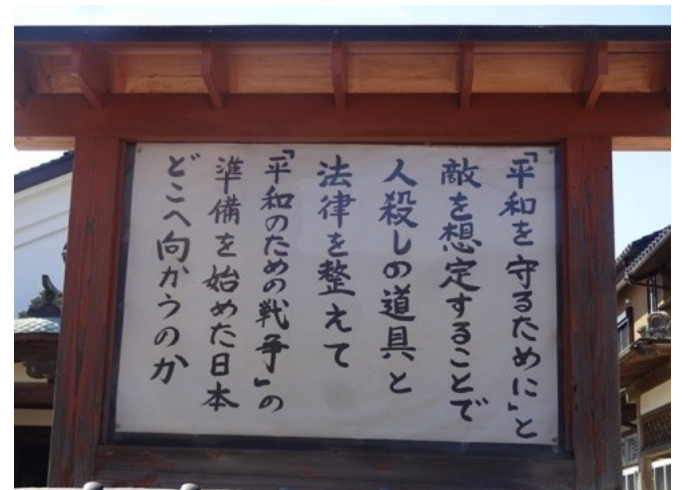 「平和を守るために」と
敵を想定することで
人殺しの道具と
法律を整えて
「平和のための戦争」の
準備を始めた日本
どこへ向かうのか